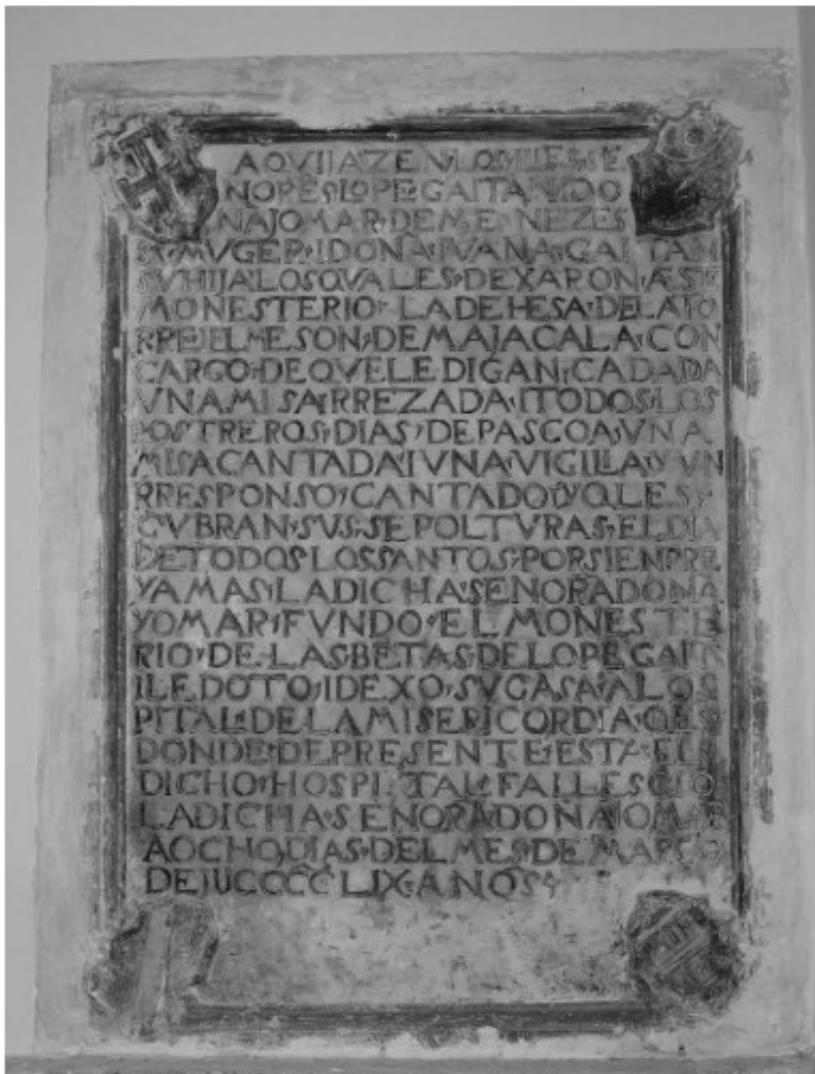 AQVIJAZEN LOS ILLES SE
NORES LOPE GAITAN I DO
NA JOMAR DE MENEZES
SV MVGER I DOÑA IVANA GAITAN
SV HIJA LOS QVALES DEXARON A ESTE
MONESTERIO LA DEHESA DE LA TO
RRE I EL MESON DE MAJACALA CON
CARGO DE QVE LE DIGAN CADA DIA
VNA MISA RREZADA I TODOS LOS
POSTREROS DIAS DE PASCOA VNA
MISA CANTADA I VNA VIGILIA Y VN
RRESPONSO CANTADO Y Q LES
CVBRAN SVS SEPOLTVRAS EL DIA
DE TODOS LOS SANTOS POR SIENPRE
YAMAS LA DICHA SENORA DOÑA
YOMAR FVNDO EL MONESTE
RIO DE LAS BETAS DE LOPE GAITA
I LE DOTO I DEXO SV CASA AL OS
PITAL DE LA MISERICORDIA Q ES
DONDE DE PRESENTE ESTA EL
DICHO HOSPITAL FALLESCIO
LA DICHA SENORA DOÑA IOMAR
A OCHO DIAS DEL MES DE MARÇO
DE JUCCCCLIX ANOS